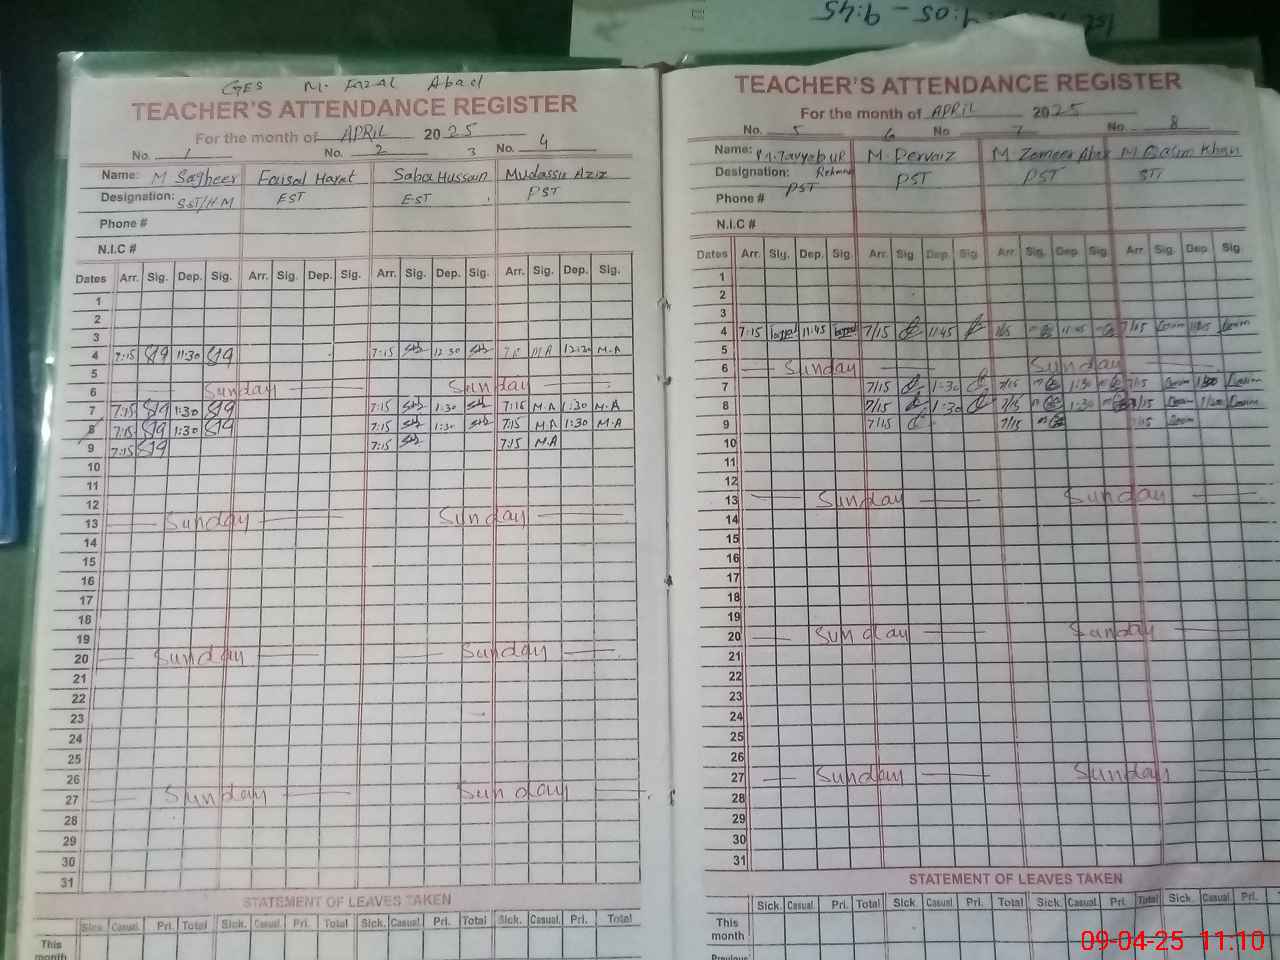 1st 9:05 - 9:45
GES M. Fazal Abad
TEACHER'S ATTENDANCE REGISTER
For the month of APRIL 2025
No. 1 No. 2 3 No. 4
Name: M Sagheer Faisal Hayat Sabar Hussain Mudassir Aziz
Designation: SST/HM EST EST PST
Phone #
N.I.C #
Dates Arr. Sig. Dep. Sig. Arr. Sig. Dep. Sig. Arr. Sig. Dep. Sig. Arr. Sig. Dep. Sig.
1
2
3
4 7:15 11:30 7:15 12:30 M.A 12:30 M.A
5
6 Sunday Sunday
7 7:15 1:30 7:15 1:30 7:15 M.A 1:30 M.A
8 7:15 1:30 7:15 1:30 7:15 M.A 1:30 M.A
9 7:15 7:15 7:15 M.A
10
11
12
13 Sunday Sunday
14
15
16
17
18
19
20 Sunday Sunday
21
22
23
24
25
26
27 Sunday Sunday
28
29
30
31
STATEMENT OF LEAVES TAKEN
Sick. Casual. Pri. Total Sick. Casual. Pri. Total Sick. Casual. Pri. Total Sick. Casual. Pri. Total
This month
TEACHER'S ATTENDANCE REGISTER
For the month of APRIL 2025
No. 5 6 No 7 No. 8
Name: M. Tayyab ur Rehman M. Pervaiz M. Zameer M Qasim Khan
Designation: PST PST PST
Phone #
N.I.C #
Dates Arr. Sig. Dep. Sig. Arr. Sig. Dep. Sig Arr. Sig. Dep Sig. Arr. Sig. Dep Sig.
1
2
3
4 7:15 11:45 7/15 11:45
5
6 Sunday Sunday
7 7/15 1:30 7/15 1:30 7/15
8 7/15 1:30 7/15 1:30
9 7/15 7/15 7/15
10
11
12
13 Sunday Sunday
14
15
16
17
18
19
20 Sunday Sunday
21
22
23
24
25
26
27 Sunday Sunday
28
29
30
31
STATEMENT OF LEAVES TAKEN
Sick. Casual. Pri. Total Sick. Casual. Pri. Total Sick. Casual. Pri. Total Sick. Casual. Pri.
This month
Previous
09-04-25 11.10